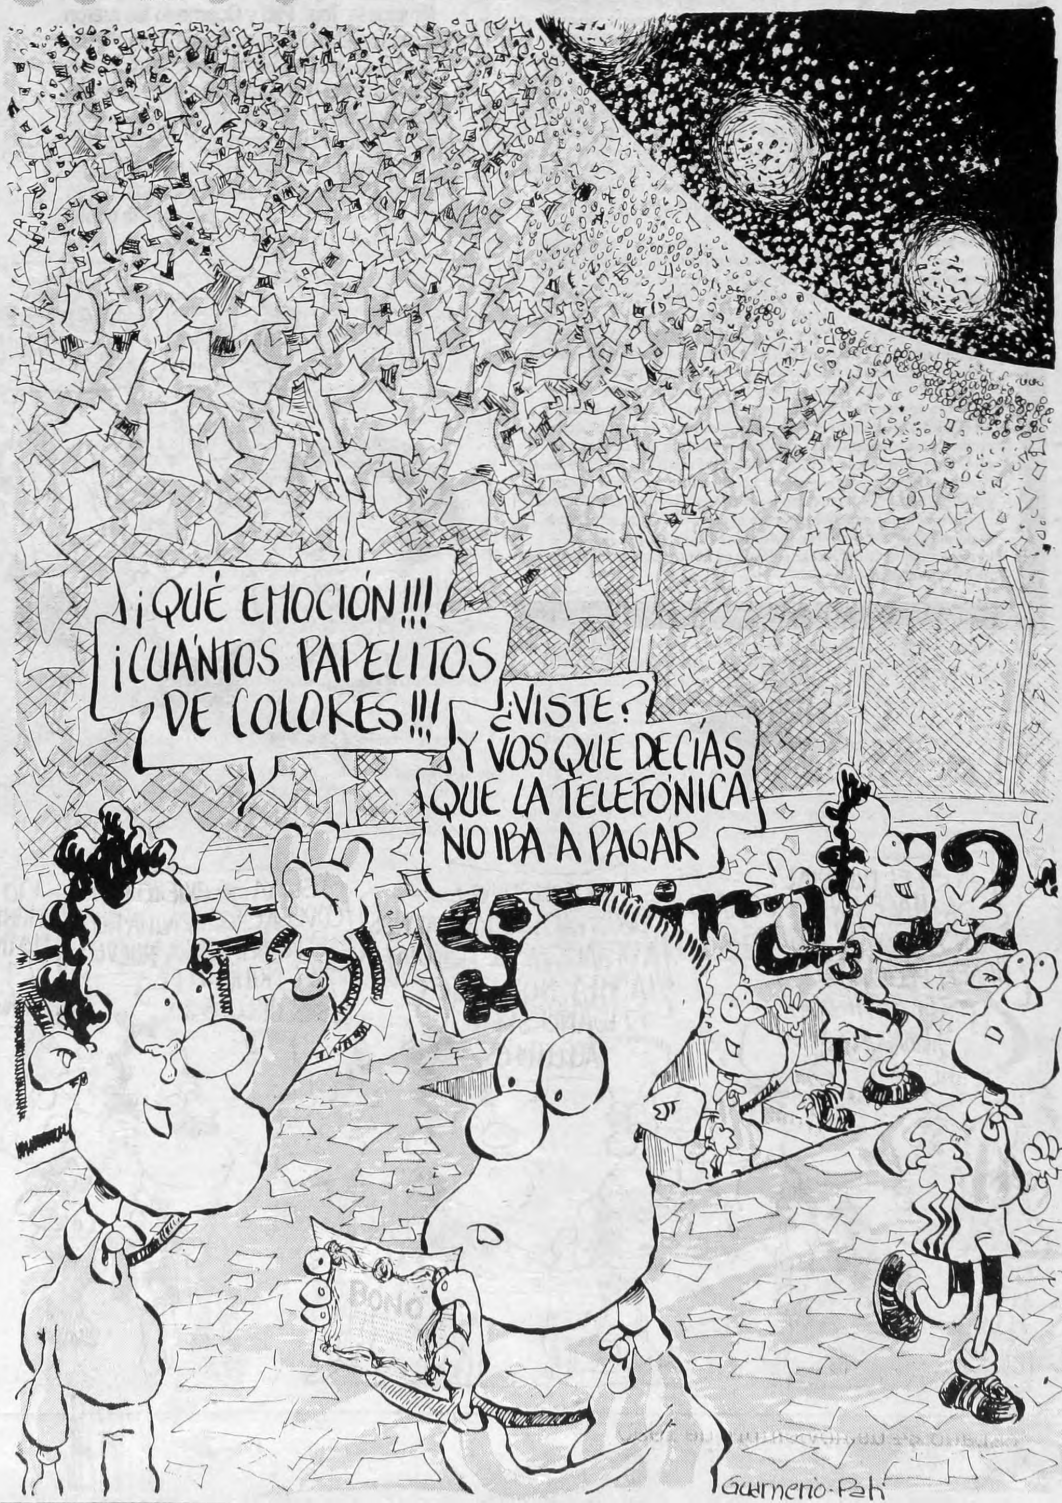 ¡QUÉ EMOCIÓN!!!
¡CUÁNTOS PAPELITOS
DE COLORES!!!
¿VISTE?
Y VOS QUE DECÍAS
QUE LA TELEFÓNICA
NO IBA A PAGAR
BONO
Guarnerio-Pati